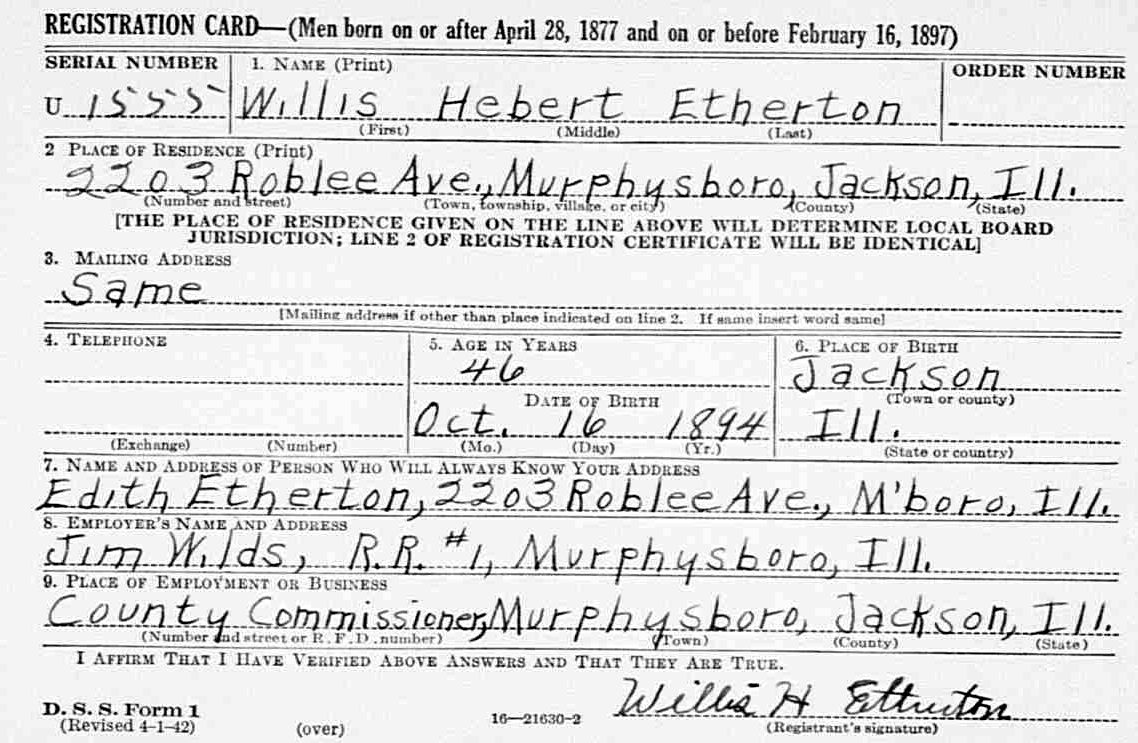 REGISTRATION CARD—(Men born on or after April 28, 1877 and on or before February 16, 1897)
SERIAL NUMBER 1. NAME (Print) ORDER NUMBER
U 1555 Willis Hebert Etherton
(First) (Middle) (Last)
2 PLACE OF RESIDENCE (Print)
2203 Roblee Ave., Murphysboro, Jackson, Ill.
(Number and street) (Town, township, village, or city) (County) (State)
[THE PLACE OF RESIDENCE GIVEN ON THE LINE ABOVE WILL DETERMINE LOCAL BOARD
JURISDICTION; LINE 2 OF REGISTRATION CERTIFICATE WILL BE IDENTICAL]
3. MAILING ADDRESS
Same
[Mailing address if other than place indicated on line 2. If same insert word same]
4. TELEPHONE 5. AGE IN YEARS 6. PLACE OF BIRTH
46 Jackson
DATE OF BIRTH (Town or county)
Oct. 16 1894 Ill.
(Exchange) (Number) (Mo.) (Day) (Yr.) (State or country)
7. NAME AND ADDRESS OF PERSON WHO WILL ALWAYS KNOW YOUR ADDRESS
Edith Etherton, 2203 Roblee Ave., M'boro, Ill.
8. EMPLOYER'S NAME AND ADDRESS
Jim Wilds, R.R. #1, Murphysboro, Ill.
9. PLACE OF EMPLOYMENT OR BUSINESS
County Commissioner, Murphysboro, Jackson, Ill.
(Number and street or R. F. D. number) (Town) (County) (State)
I AFFIRM THAT I HAVE VERIFIED ABOVE ANSWERS AND THAT THEY ARE TRUE.
Willis H Etherton
D. S. S. Form 1
(Revised 4-1-42) (over) 16—21630-2 (Registrant's signature)